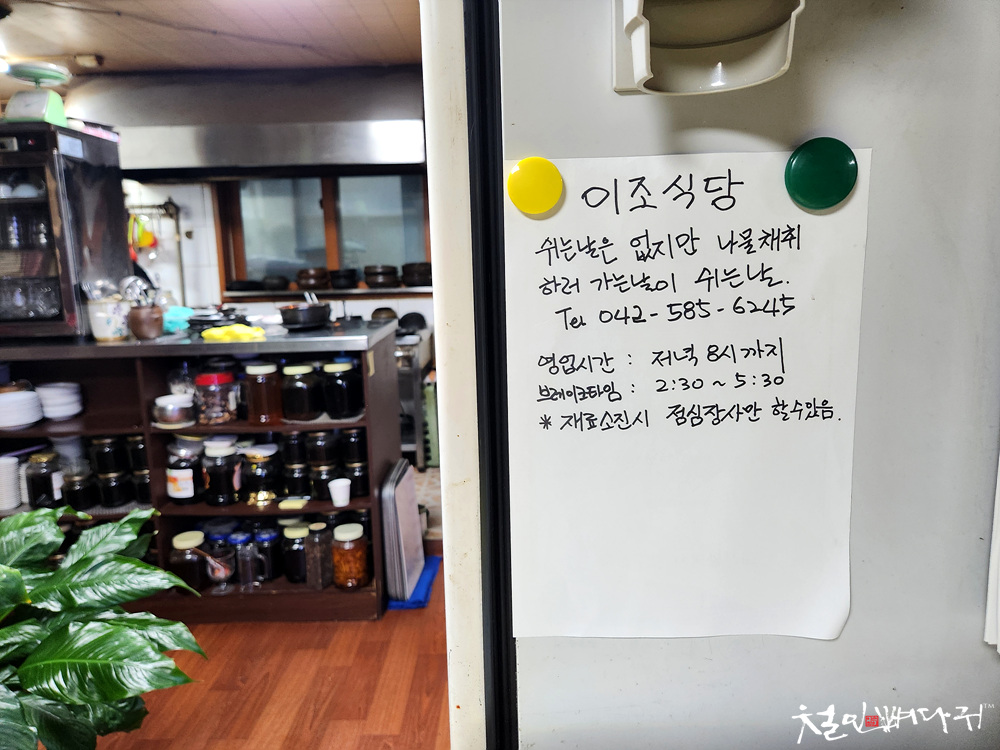 이조식당
쉬는날은 없지만 나물채취
하러 가는날이 쉬는날.
Tel 042-585-6245
영업시간 : 저녁 8시까지
브레이크타임 : 2:30 ~ 5:30
* 재료소진시 점심장사만 할수있음.